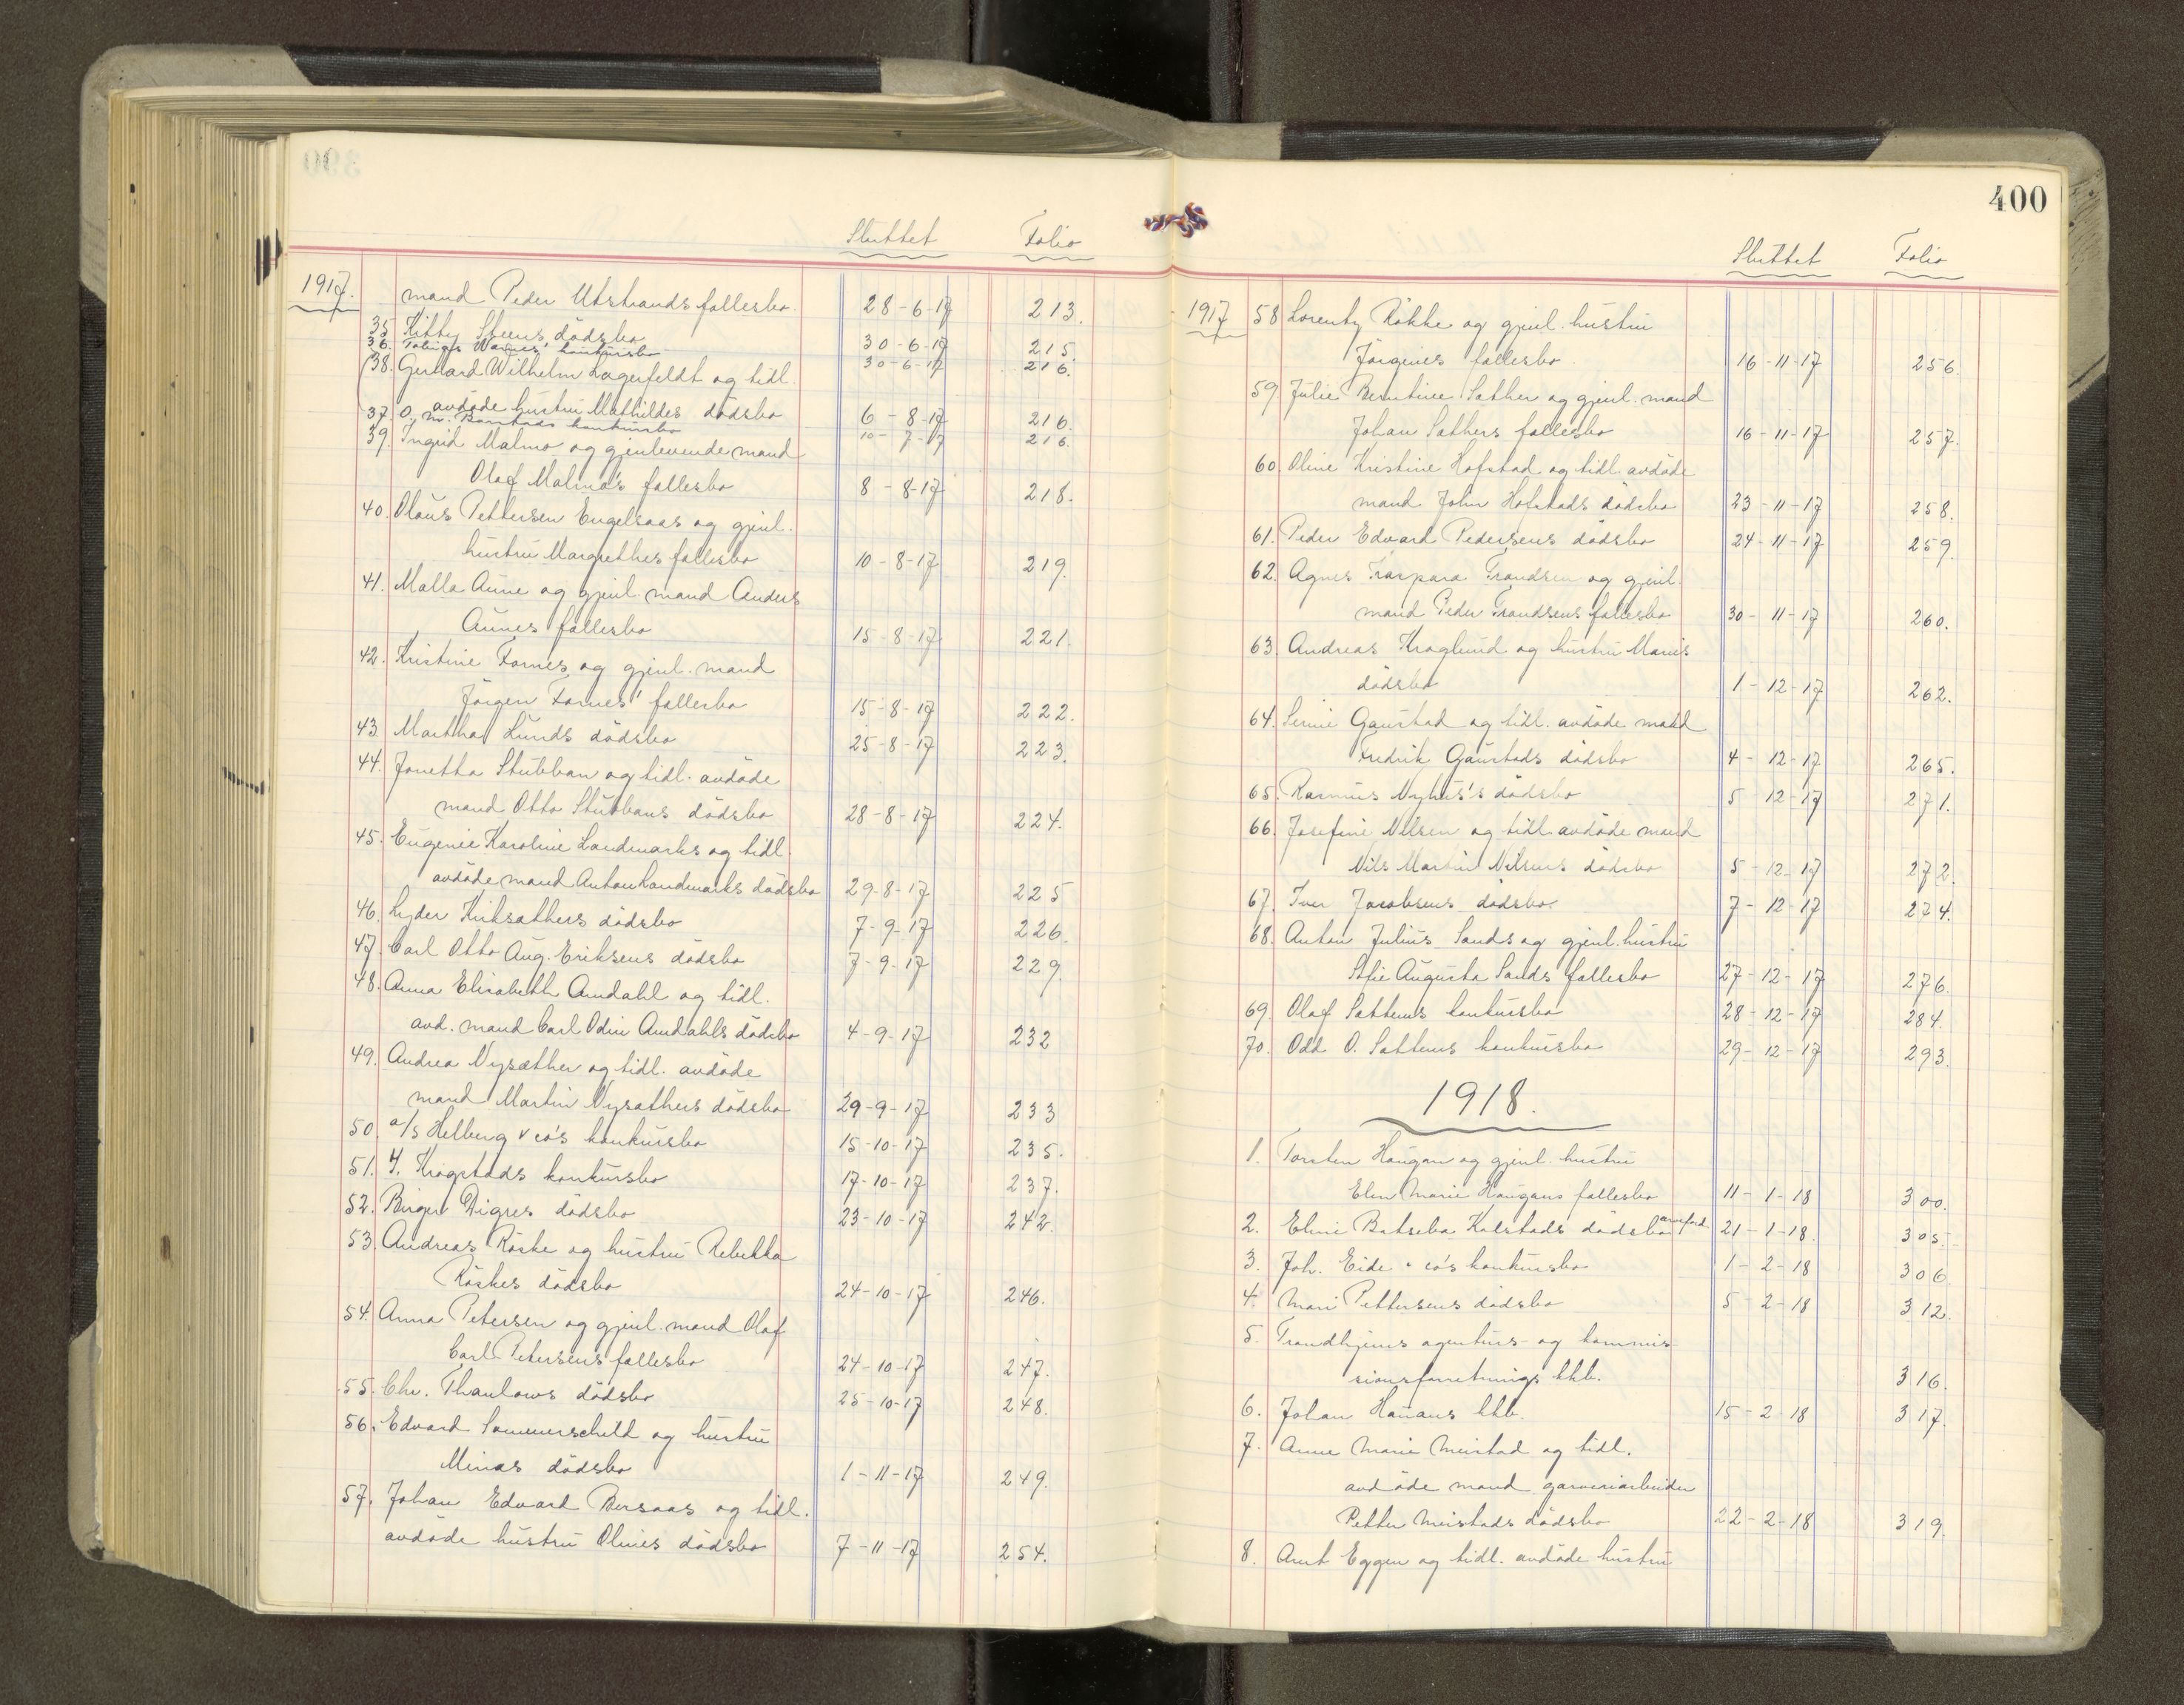 Sluttet Folio
1917. mand Peder Utstrands fællesbo 28-6-17 213.
35 Kitty Steens dödsbo 30-6-17 215.
36. Tobias Warnes' konkursbo 30-6-17 216.
38. Gerhard Wilhelm Lagerfeldt og tidl.
avdöde hustru Mathildes dödsbo 6-8-17 216.
37. O. M. Barstads konkursbo 10-7-17 216.
39. Ingrid Malmo og gjenlevende mand
Olaf Malmo's fællesbo 8-8-17 218.
40. Olaus Pettersen Engelsaas og gjenl.
hustru Margrethes fællesbo 10-8-17 219.
41. Malla Aune og gjenl. mand Anders
Aunes fællesbo 15-8-17 221.
42. Kristine Fornes og gjenl. mand
Jörgen Fornes' fællesbo 15-8-17 222.
43. Martha Lunds dödsbo 25-8-17 223.
44. Jonetha Stubban og tidl. avdöde
mand Otto Stubbans dödsbo 28-8-17 224.
45. Eugenie Karoline Landmarks og tidl.
avdöde mand Anton Landmarks dödsbo 29-8-17 225
46. Lyder Kiksæthers dödsbo 7-9-17 226.
47. Carl Otto Aug. Eriksens dödsbo 7-9-17 229.
48. Anna Elisabeth Amdahl og tidl.
avd. mand Carl Odin Amdahls dödsbo 4-9-17 232
49. Andrea Nysæther og tidl. avdöde
mand Martin Nysæthers dödsbo 29-9-17 233
50. a/s Helberg & co's konkursbo 15-10-17 235.
51. H. Krogstads konkursbo 17-10-17 237.
52. Birger Digres dödsbo 23-10-17 242.
53. Andreas Röske og hustru Rebekka
Röskes dödsbo 24-10-17 246.
54. Anna Petersen og gjenl. mand Olaf
Carl Petersens fællesbo 24-10-17 247.
55. Chr. Thaulows dödsbo 25-10-17 248.
56. Edvard Sommerschield og hustru
Minas dödsbo 1-11-17 249.
57. Johan Edvard Bersaas og tidl.
avdöde hustru Olines dödsbo 7-11-17 254.
400
Sluttet Folio
1917 58 Lorentz Rökke og gjenl. hustru
Jörgines fællesbo 16-11-17 256.
59. Julie Berntine Sæther og gjenl. mand
Johan Sæthers fællesbo 16-11-17 257.
60. Oline Kristine Hofstad og tidl. avdöde
mand John Hofstads dödsbo 23-11-17 258.
61. Peder Edvard Pedersens dödsbo 24-11-17 259.
62. Agnes Traspara Frandsen og gjenl.
mand Peder Frandsens fællesbo 30-11-17 260.
63. Andreas Kroglund og hustru Maries
dödsbo 1-12-17 262.
64. Serine Gaustad og tidl. avdöde mand
Fredrik Gaustads dödsbo 4-12-17 265.
65. Rasmus Nyhus's dödsbo 5-12-17 271.
66. Josefine Nilsen og tidl. avdöde mand
Nils Martin Nilsens dödsbo 5-12-17 272.
67. Iver Jacobsens dödsbo. 7-12-17 274.
68. Anton Julius Sands og gjenl. hustru
Sofie Augusta Sands fællesbo 27-12-17 276.
69. Olaf Sættems konkursbo 28-12-17 284.
70. Odd O. Sættems konkursbo 29-12-17 293.
1918.
1. Torsten Haugan og gjenl. hustru
Elen Marie Haugans fællesbo 11-1-18 300.
2. Elini Batseba Kolstads dödsbo 21-1-18. 305.
3. Joh. Eide & co's konkursbo 1-2-18 306
4. Mari Pettersens dödsbo 5-2-18 312.
5. Trondhjems agenturs- og kommis-
sionsforretnings kkb. 316.
6. Johan Hanans kkb. 15-2-18 317.
7. Anne Marie Meistad og tidl.
avdöde mand garveriarbeider
Petter Meistads dödsbo 22-2-18 319.
8. Arnt Eggen og tidl. avdöde hustru